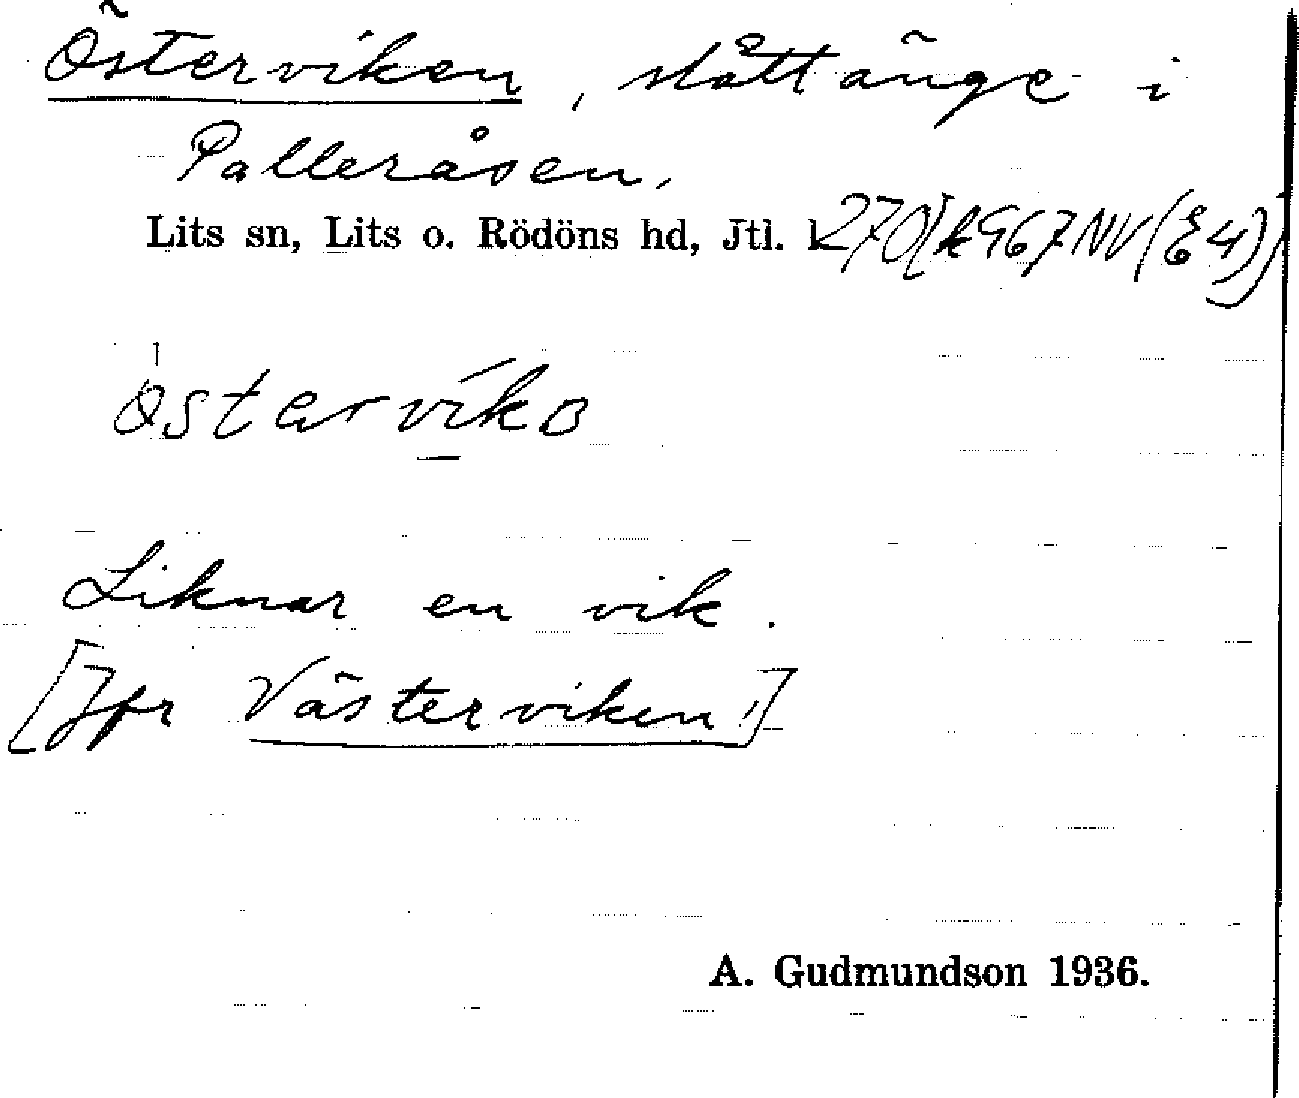 Österviken, slåttänge i
Palleråsen.
Lits sn, Lits o. Rödöns hd, Jtl.
Liknar en vik.
[Jfr Västerviken!]
A. Gudmundson 1936.